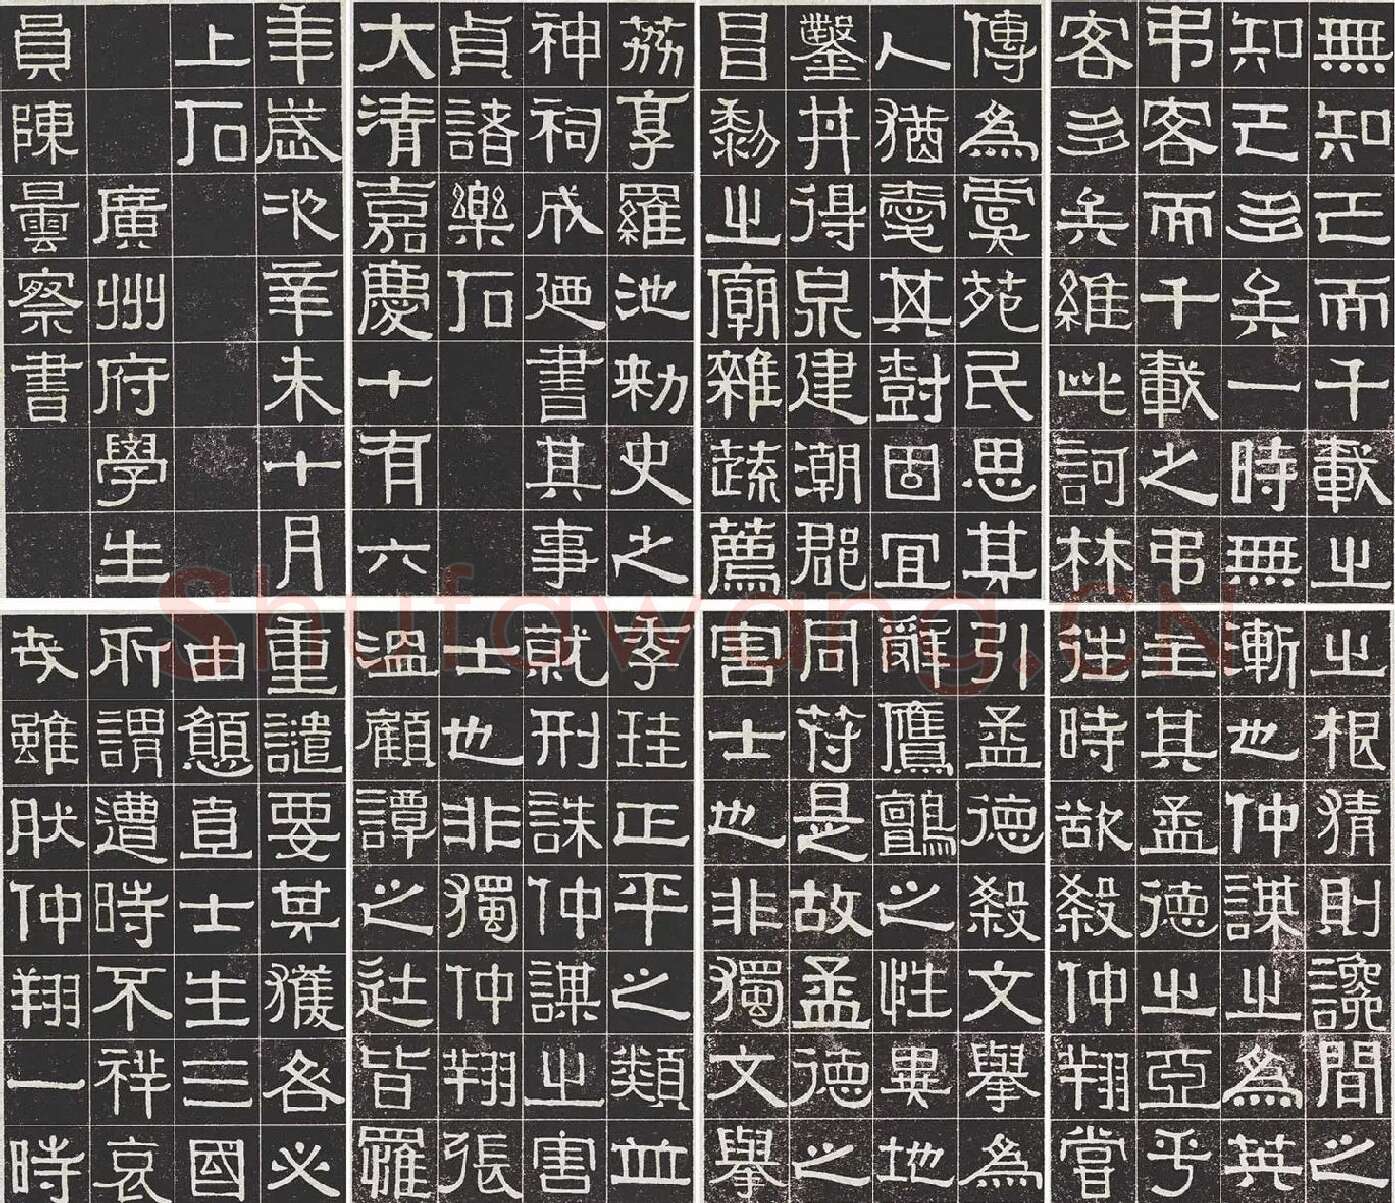 無知己而千載之
知己多矣一時無
弔客而千載之弔
客多矣維此訶林
傳為虞苑民思其
人猶愛其樹固宜
鑿井得泉建潮郡
昌黎之廟雜蔬薦
荔享羅池刺史之
神祠成廼書其事
貞諸樂石
大清嘉慶十有六
年歲次辛未十月
上石
廣州府學生
員陳曇察書
之根猜則讒間之
漸也仲謀之為英
主其孟德之亞乎
往時欲殺仲翔嘗
引孟德殺文舉為
辭鷹鸇之性異地
同符是故孟德之
害士也非獨文舉
季珪正平之類並
就刑誅仲謀之害
士也非獨仲翔張
溫顧譚之徒皆罹
重譴要其獲咎必
由戇直士生三國
所謂遭時不祥哀
哉雖然仲翔一時
Shufawang.CN